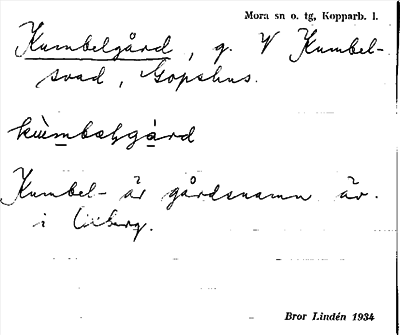 Mora sn o. tg, Kopparb. l.
Kumbelgård, g. V Kumbel-
svad, Gopshus.
Kumbel- är gårdsnamn äv.
i
Bror Lindén 1934